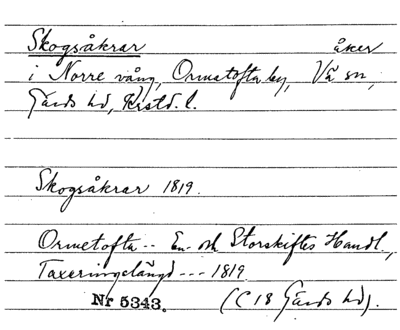 Skogsåkrar åker
i Norre vång, Ormatofta by, Vä sn,
Gärds hd, Kristd. l.
Skogsåkrar 1819.
Ormetofta -- En- och Storskiftes Handl.,
Taxeringslängd --- 1819
Nr 5343. (C 18 Gärds hd).